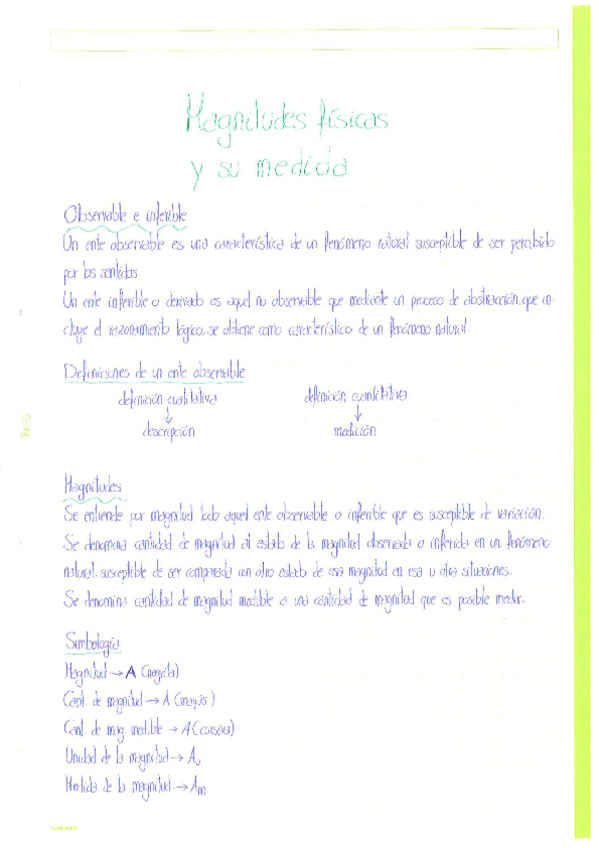 Magnitudes físicas
y su medida
Observable e inferible
Un ente observable es una característica de un fenómeno natural susceptible de ser percibido
por los sentidos
Un ente inferible o derivado es aquel no observable que mediante un proceso de abstracción, que in-
cluye el razonamiento lógico, se obtiene como característico de un fenómeno natural.
Definiciones de un ente observable
definición cualitativa definición cuantitativa
↓ ↓
descripción medición
Magnitudes
Se entiende por magnitud todo aquel ente observable o inferible que es susceptible de variación.
Se denomina cantidad de magnitud al estado de la magnitud observada o inferida en un fenómeno
natural susceptible de ser comparada con otro estado de esa magnitud en esa u otra situaciones.
Se denomina cantidad de magnitud medible a una cantidad de magnitud que es posible medir.
Simbología
Magnitud → A (negrita)
Cant. de magnitud → A (mayús)
Cant. de mag. medible → A (cursiva)
Unidad de la magnitud → Au
Medida de la magnitud → Am